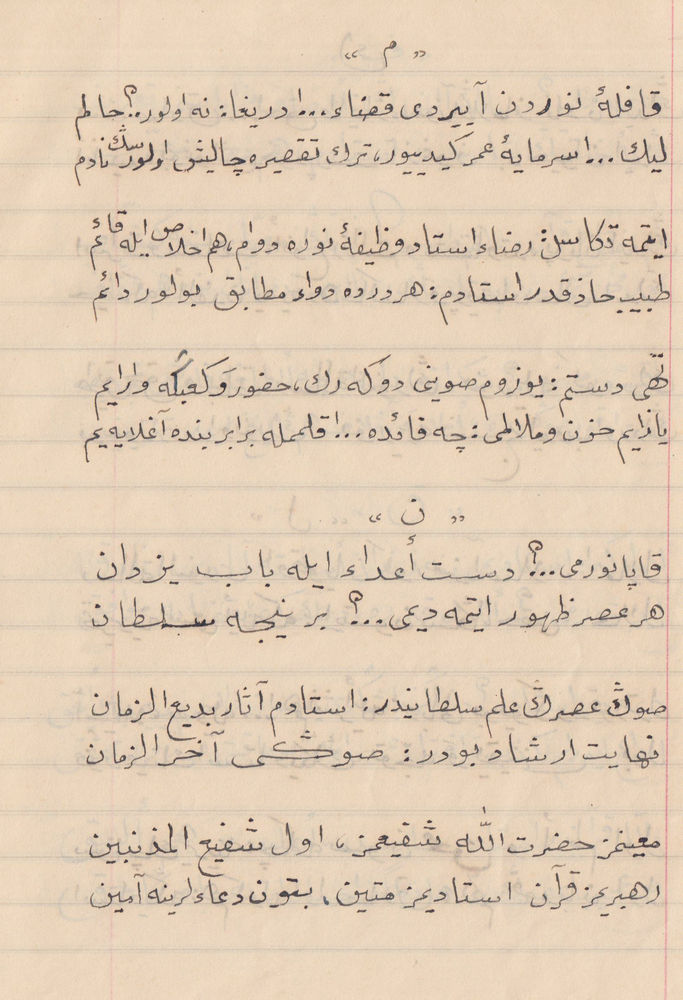 « م »
قافلهٔ نوردن آییردی قضاء...! دریغا: نه اولور..؟ حالم
لیك...! سرمایهٔ عمر كیدییور، ترك تقصیره چالیش اولورسڭ نادم
ایتمه تكاسل: رضاء استاد وظیفهٔ نوره دوام، هم اخلاص ایله قائم
طبیب حاذقدر استادم: هر درده دواء مطابق بولور دائم
تهی دستم: یوزوم صوینی دوكه رك، حضور و كعبڭه وارایم
یازایم حزن و ملالمی: چه فائده...! قلممله برابر بنده آغلایه یم
« ن »
قاپانورمی...؟ دست أعداء ایله باب یزدان
هر عصر ظهور ایتمه دیمی...؟ بر نیجه سلطان
صوڭ عصرڭ علم سلطانیدر: استادم آثار بدیع الزمان
نهایت ارشاد بودر: صوڭكی آخر الزمان
معینمز حضرت اللّٰه شفیعمز، اول شفیع المذنبین
رهبریمز قرآن استادیمز متین، بتون دعاءلرینه آمین